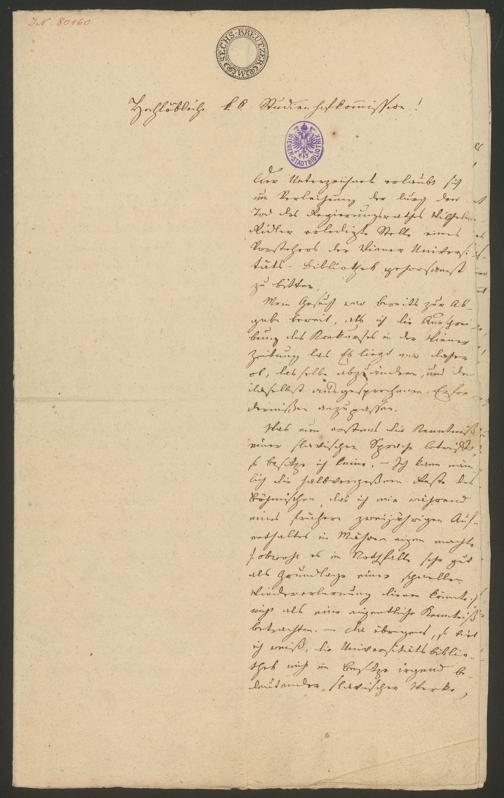 JN 80160
SECHS-KREUTZER
CM
Hochlöbliche k. k. Studienhofkommission!
WIENER STADTBIBLIOTHEK
Der Unterzeichnete erlaubt sich
um Verleihung der durch den
Tod des Regierungsrathes Wilhelm
Ridler erledigte Stelle eines
Vorstehers der Wiener Universi-
täts-Bibliothek gehorsamst
zu bitten.
Mein Gesuch war bereits zur Ab-
gabe bereit, als ich die Ausschrei-
bung des Konkurses in der Wiener
Zeitung las. Es liegt mir daher
ob, dasselbe abzuändern, und den
daselbst ausgesprochenen Erfor-
dernißen anzupassen.
Was nun erstens die Kenntniß
einer slavischen Sprache betrifft,
so besitze ich keine. – Ich kann näm-
lich die halbvergeßnen Reste des
Böhmischen, das ich mir während
eines frühern zweijährigen Auf-
enthaltes in Mähren eigen machte
obwohl es im Nothfalle sehr gut
als Grundlage einer schnellen
Wiedererlernung dienen könnte,
nicht als eine eigentliche Kenntniß
betrachten. – Da übrigens, so viel
ich weiß, die Universitätsbiblio-
thek nicht im Besitze irgend be-
deutender slavischer Werke,